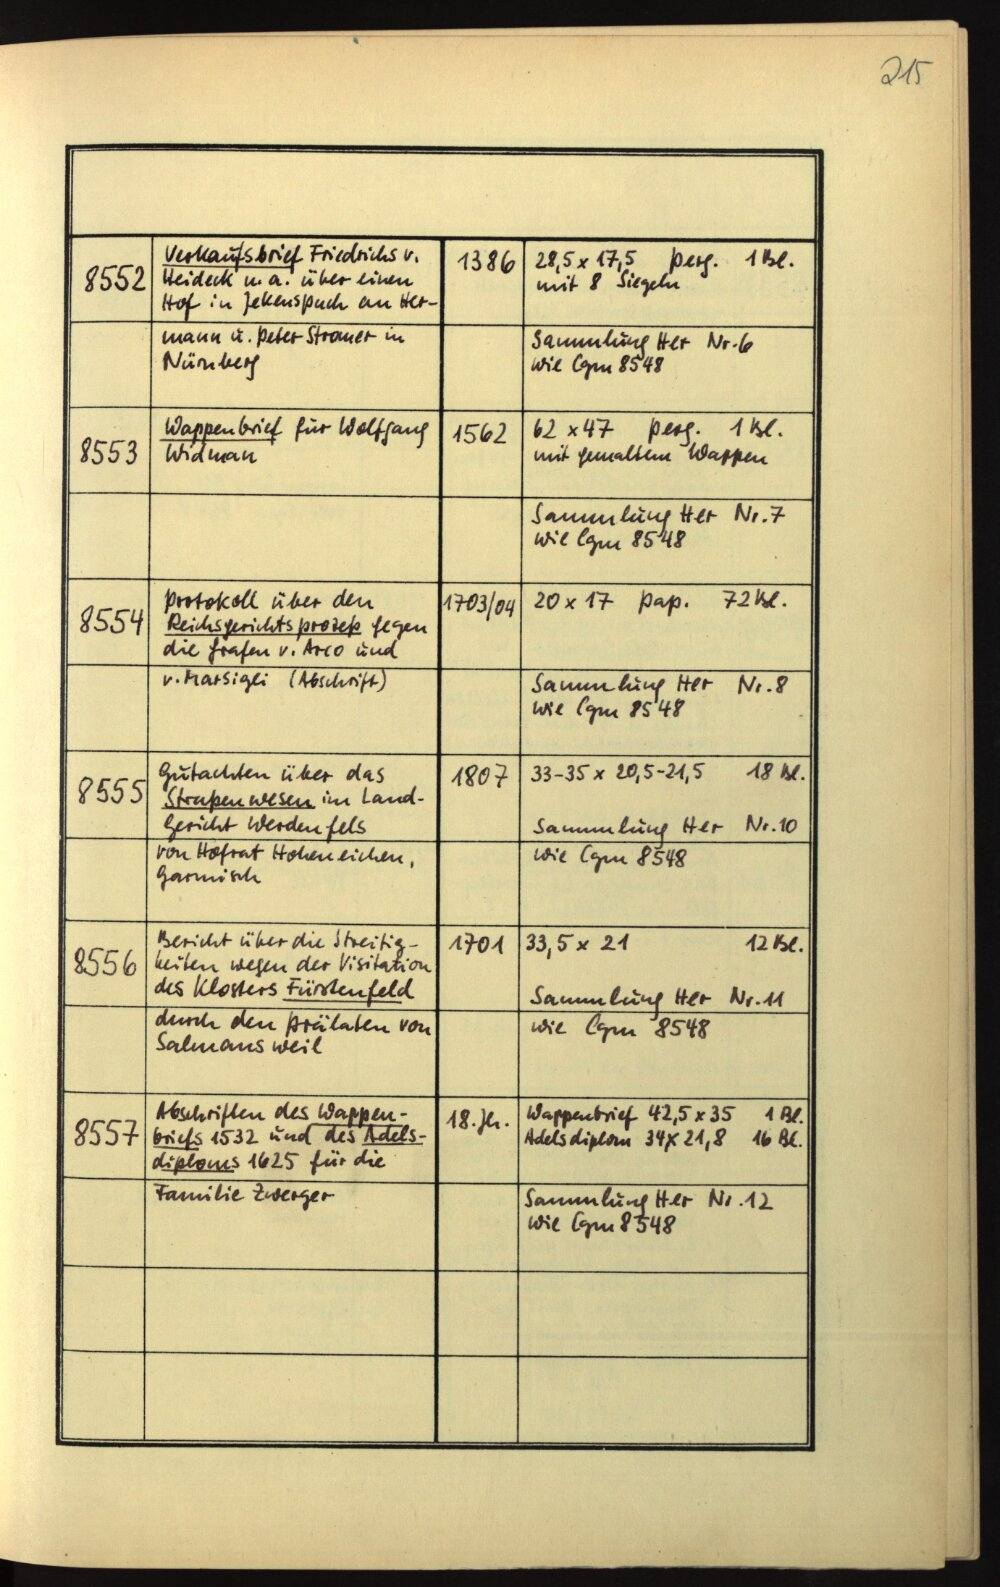 215
8552
Verkaufsbrief Friedrichs v.
Heideck u. a. über einen
Hof in Jekenspuch an Her-
mann u. Peter Stromer in
Nürnberg
1386
28,5 x 17,5 Perg. 1 Bl.
mit 8 Siegeln
Sammlung Her Nr. 6
wie Cgm 8548
8553
Wappenbrief für Wolfgang
Widman
1562
62 x 47 Perg. 1 Bl.
mit gemaltem Wappen
Sammlung Her Nr. 7
wie Cgm 8548
8554
Protokoll über den
Reichsgerichtsprozeß gegen
die Grafen v. Arco und
v. Marsigli (Abschrift)
1703/04
20 x 17 Pap. 72 Bl.
Sammlung Her Nr. 8
wie Cgm 8548
8555
Gutachten über das
Straßenwesen im Land-
gericht Werdenfels
von Hofrat Hoheneichen,
Garmisch
1807
33-35 x 20,5-21,5 18 Bl.
Sammlung Her Nr. 10
wie Cgm 8548
8556
Bericht über die Streitig-
keiten wegen der Visitation
des Klosters Fürstenfeld
durch den Prälaten von
Salmansweil
1701
33,5 x 21 12 Bl.
Sammlung Her Nr. 11
wie Cgm 8548
8557
Abschriften des Wappen-
briefs 1532 und des Adels-
diploms 1625 für die
Familie Zwerger
18. Jh.
Wappenbrief 42,5 x 35 1 Bl.
Adelsdiplom 34 x 21,8 16 Bl.
Sammlung Her Nr. 12
wie Cgm 8548